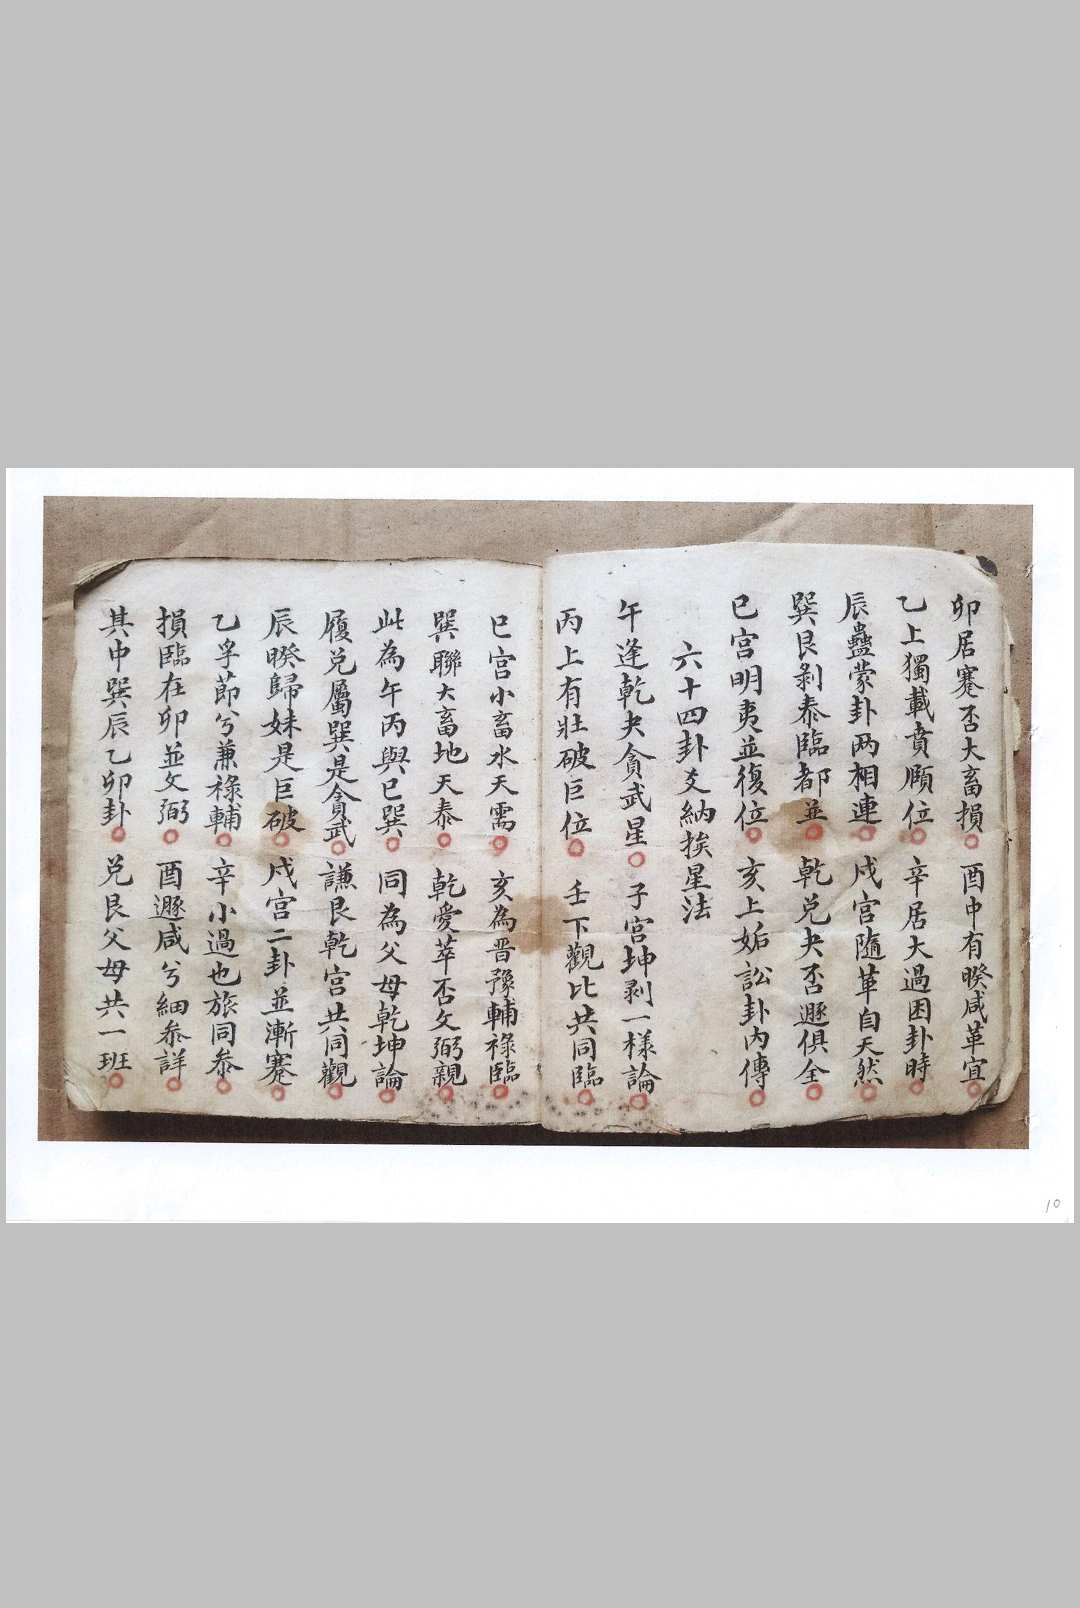 卯居蹇否大畜損○酉中有睽咸革宜○
乙上獨載賁頤位○辛居大過困卦時○
辰蠱蒙卦两相連○戌宮隨革自天然○
巽艮剥泰臨都並○乾兑夬否遯俱全○
巳宮明夷並復位○亥上姤訟卦内傳○
六十四卦爻納挨星法
午逢乾夬貪武星○子宮坤剥一樣論○
丙上有壯破巨位○壬下觀比共同臨○
巳宮小畜水天需○亥為晋豫輔祿臨○
巽聯大畜地天泰○乾愛萃否文弼親○
此為午丙與巳巽○同為父母乾坤論○
履兑屬巽是貪武○謙艮乾宮共同觀○
辰睽歸妹是巨破○戌宮二卦並漸蹇○
乙孚節兮兼祿輔○辛小過也旅同叅○
損臨在卯並文弼○酉遯咸兮細叅詳○
其中巽辰乙卯卦○兑艮父母共一班○
10